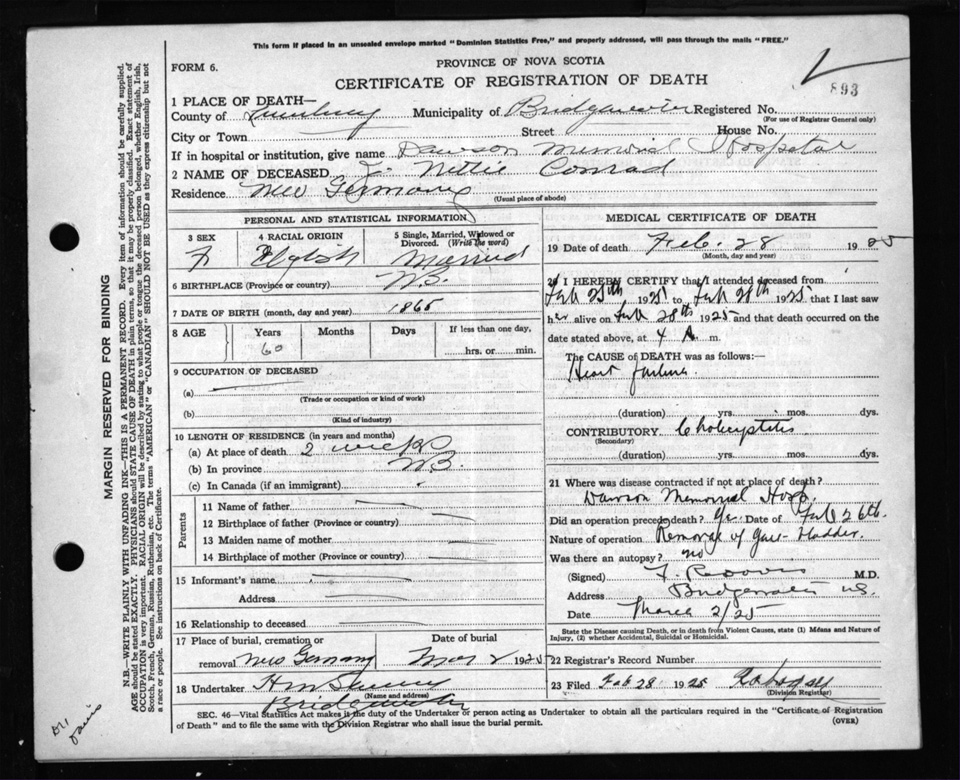 This form if placed in an unsealed envelope marked "Dominion Statistics Free," and properly addressed, will pass through the mails "FREE."
FORM 6.
PROVINCE OF NOVA SCOTIA
CERTIFICATE OF REGISTRATION OF DEATH
893
1 PLACE OF DEATH—
County of Lunenburg Municipality of Bridgewater Registered No.
(For use of Registrar General only)
City or Town Street House No.
If in hospital or institution, give name Dawson Memorial Hospital
2 NAME OF DECEASED Nettie Conrad
Residence New Germany
(Usual place of abode)
PERSONAL AND STATISTICAL INFORMATION
3 SEX 4 RACIAL ORIGIN 5 Single, Married, Widowed or Divorced. (Write the word)
F English Married
6 BIRTHPLACE (Province or country) N.B.
7 DATE OF BIRTH (month, day and year) 1865
8 AGE Years Months Days If less than one day,
60 hrs. or min.
9 OCCUPATION OF DECEASED
(a)
(Trade or occupation or kind of work)
(b)
(Kind of industry)
10 LENGTH OF RESIDENCE (in years and months)
(a) At place of death 2 weeks
(b) In province N.B.
(c) In Canada (if an immigrant)
Parents
11 Name of father
12 Birthplace of father (Province or country)
13 Maiden name of mother
14 Birthplace of mother (Province or country)
15 Informant's name
Address
16 Relationship to deceased
17 Place of burial, cremation or Date of burial
removal New Germany Mar 2 1925
18 Undertaker
(Name and address)
Bridgewater
MEDICAL CERTIFICATE OF DEATH
19 Date of death Feb. 28 1925
(Month, day and year)
20 I HEREBY CERTIFY that I attended deceased from
Feb 25th 1925 to Feb 28th 1925 that I last saw
her alive on Feb 28th 1925 and that death occurred on the
date stated above, at 4 A m.
The CAUSE OF DEATH was as follows:—
Heart failure
(duration) yrs. mos. dys.
CONTRIBUTORY Cholecystitis
(Secondary)
(duration) yrs. mos. dys.
21 Where was disease contracted if not at place of death?
Dawson Memorial Hosp.
Did an operation precede death? Yes Date of Feb 26th
Nature of operation Removal of Gall-bladder
Was there an autopsy? no
(Signed) M.D.
Address Bridgewater N.S.
Date March 2/25
State the Disease causing Death, or in death from Violent Causes, state (1) Means and Nature of
Injury, (2) whether Accidental, Suicidal or Homicidal.
22 Registrar's Record Number
23 Filed Feb 28 1925
(Division Registrar)
SEC. 46—Vital Statistics Act makes it the duty of the Undertaker or person acting as Undertaker to obtain all the particulars required in the "Certificate of Registration
of Death" and to file the same with the Division Registrar who shall issue the burial permit. (OVER)
MARGIN RESERVED FOR BINDING
N.B.—WRITE PLAINLY WITH UNFADING INK—THIS IS A PERMANENT RECORD. Every item of information should be carefully supplied.
AGE should be stated EXACTLY. PHYSICIANS should STATE CAUSE OF DEATH in plain terms, so that it may be properly classified. Exact statement of
OCCUPATION is very important. RACIAL ORIGIN will be described by stating to what people or tongue the deceased person belonged, whether English, Irish,
Scotch, French, German, Russian, Ruthenian, etc. The terms "AMERICAN" or "CANADIAN" SHOULD NOT BE USED as they express citizenship but not
a race or people. See instructions on back of Certificate.